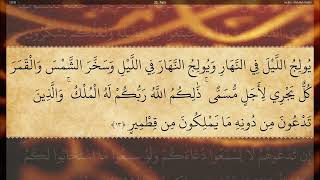 35. Fatir
يُولِجُ اللَّيْلَ فِي النَّهَارِ وَيُولِجُ النَّهَارَ فِي اللَّيْلِ وَسَخَّرَ الشَّمْسَ وَالْقَمَرَ
كُلٌّ يَجْرِي لِأَجَلٍ مُّسَمًّى ۚ ذَٰلِكُمُ اللَّهُ رَبُّكُمْ لَهُ الْمُلْكُ ۚ وَالَّذِينَ
تَدْعُونَ مِن دُونِهِ مَا يَمْلِكُونَ مِن قِطْمِيرٍ ﴿١٣﴾